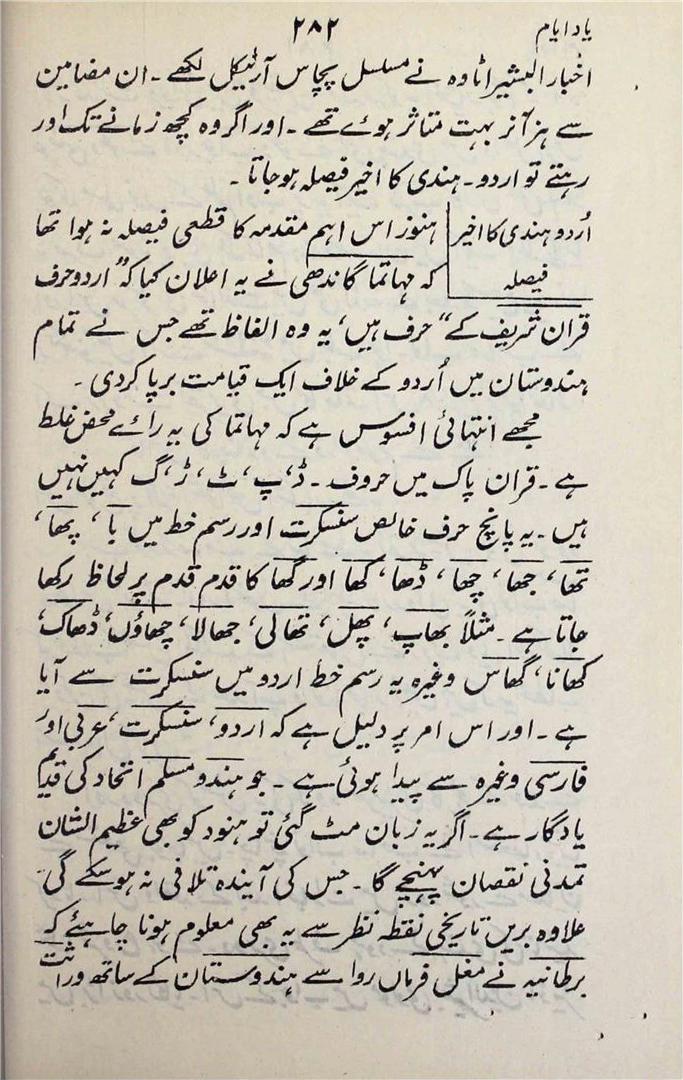 یاد ایام ۲۸۲
اخبار البشیر اٹاوہ نے مسلسل پچاس آرٹیکل لکھے ۔ ان مضامین
سے ہز آنر بہت متاثر ہوے تھے ۔ اور اگر وہ کچھ زمانے تک اور
رہتے تو اردو ۔ ہندی کا اخیر فیصلہ ہو جاتا ۔
اُردو ہندی کا اخیر
فیصلہ
ہنوز اس اہم مقدمہ کا قطعی فیصلہ نہ ہوا تھا
کہ مہاتما گاندھی نے یہ اعلان کیا کہ "اردو حرف
قران شریف کے" حرف ہیں، یہ وہ الفاظ تھے جس نے تمام
ہندوستان میں اُردو کے خلاف ایک قیامت برپا کردی ۔
مجھے انتہائی افسوس ہے کہ مہاتما کی یہ رائے محض غلط
ہے ۔ قران پاک میں حروف ۔ ڈ، پ، ٹ، ڑ، گ کہیں نہیں
ہیں ۔ یہ پانچ حرف خالص سنسکرت اور رسم خط میں با، پھا،
تھا، جھا، چھا، ڈھا، کھا اور گھا کا قدم قدم پر لحاظ رکھا
جاتا ہے ۔ مثلاً بھاپ، پھل، تھالی، جھالا، چھاؤں، ڈھاک،
کھانا، گھاس وغیرہ یہ رسم خط اردو میں سنسکرت سے آیا
ہے ۔ اور اس امر پر دلیل ہے کہ اردو، سنسکرت، عربی اور
فارسی وغیرہ سے پیدا ہوئی ہے ۔ جو ہندو مسلم اتحاد کی قدیم
یادگار ہے ۔ اگر یہ زبان مٹ گئی تو ہنود کو بھی عظیم الشان
تمدنی نقصان پہنچے گا ۔ جس کی آیندہ تلافی نہ ہو سکے گی
علاوہ بریں تاریخی نقطہ نظر سے یہ بھی معلوم ہونا چاہئے کہ
برطانیہ نے مغل فرماں روا سے ہندوستان کے ساتھ وراثت